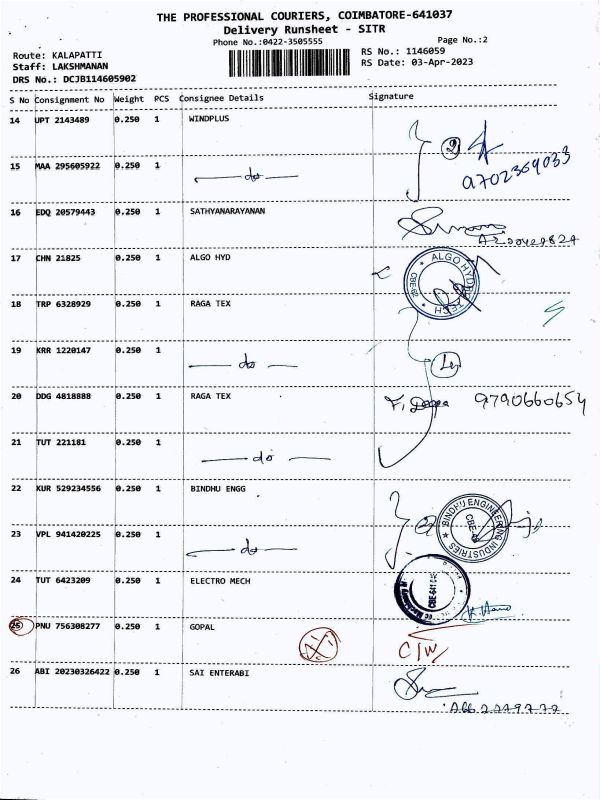 THE PROFESSIONAL COURIERS, COIMBATORE-641037
Delivery Runsheet - SITR
Phone No.:0422-3505555
Page No.:2
Route: KALAPATTI
RS No.: 1146059
Staff: LAKSHMANAN
RS Date: 03-Apr-2023
DRS No.: DCJB114605902
S No Consignment No Weight PCS Consignee Details Signature
14 UPT 2143489 0.250 1 WINDPLUS
2
9702369033
15 MAA 295605922 0.250 1 do
16 EDQ 20579443 0.250 1 SATHYANARAYANAN
17 CHN 21825 0.250 1 ALGO HYD
ALGO HYDRO TECH
CBE-62
18 TRP 6328929 0.250 1 RAGA TEX
19 KRR 1220147 0.250 1 do
20 DDG 4818888 0.250 1 RAGA TEX 9790660654
21 TUT 221181 0.250 1 do
22 KUR 529234556 0.250 1 BINDHU ENGG
2
BINDHU ENGINEERING INDUSTRIES
23 VPL 941420225 0.250 1 do
24 TUT 6423209 0.250 1 ELECTRO MECH
25 PNU 756308277 0.250 1 GOPAL
C/W
26 ABI 20230326422 0.250 1 SAI ENTERABI